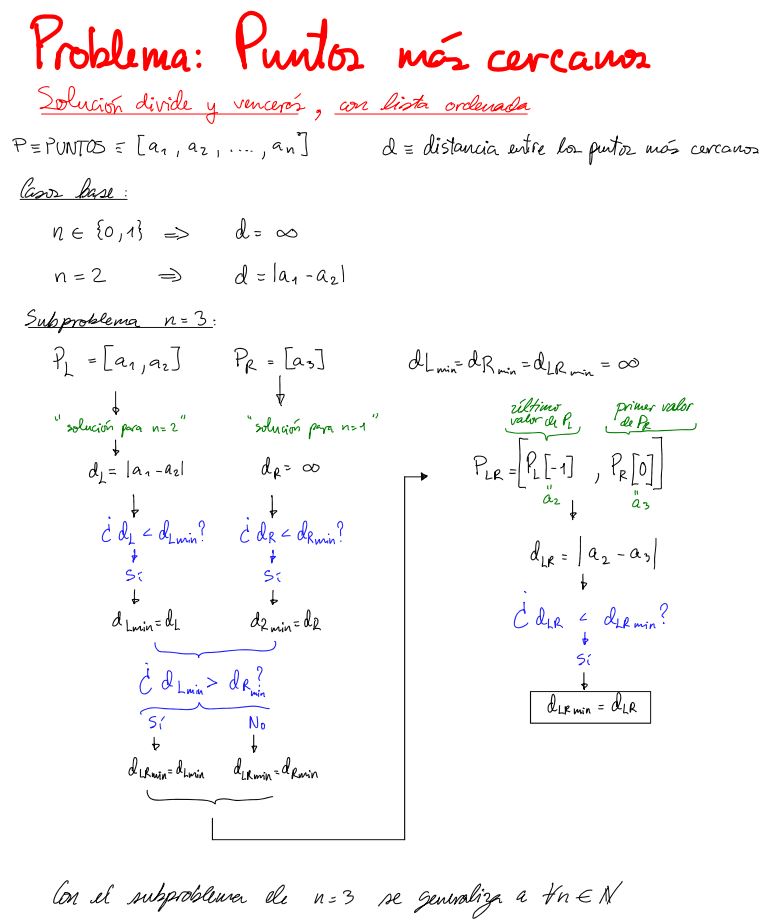 Problema: Puntos más cercanos
Solución divide y vencerás, con lista ordenada
P ≡ PUNTOS ≡ [a₁, a₂, ...., aₙ]
d ≡ distancia entre los puntos más cercanos
Casos base:
n ∈ {0,1} ⇒ d = ∞
n = 2 ⇒ d = |a₁ - a₂|
Subproblema n=3:
P_L = [a₁, a₂] P_R = [a₃] d_Lmin = d_Rmin = d_LRmin = ∞
"solución para n=2" "solución para n=1"
d_L = |a₁ - a₂| d_R = ∞
¿ d_L < d_Lmin? ¿ d_R < d_Rmin?
Sí Sí
d_Lmin = d_L d_Rmin = d_R
¿ d_Lmin > d_Rmin?
Sí No
d_LRmin = d_Lmin d_LRmin = d_Rmin
último valor de P_L primer valor de P_R
P_LR = [P_L[-1] , P_R[0]]
" a₂ " a₃
d_LR = |a₂ - a₃|
¿ d_LR < d_LRmin?
Sí
d_LRmin = d_LR
Con el subproblema de n=3 se generaliza a ∀n ∈ ℕ